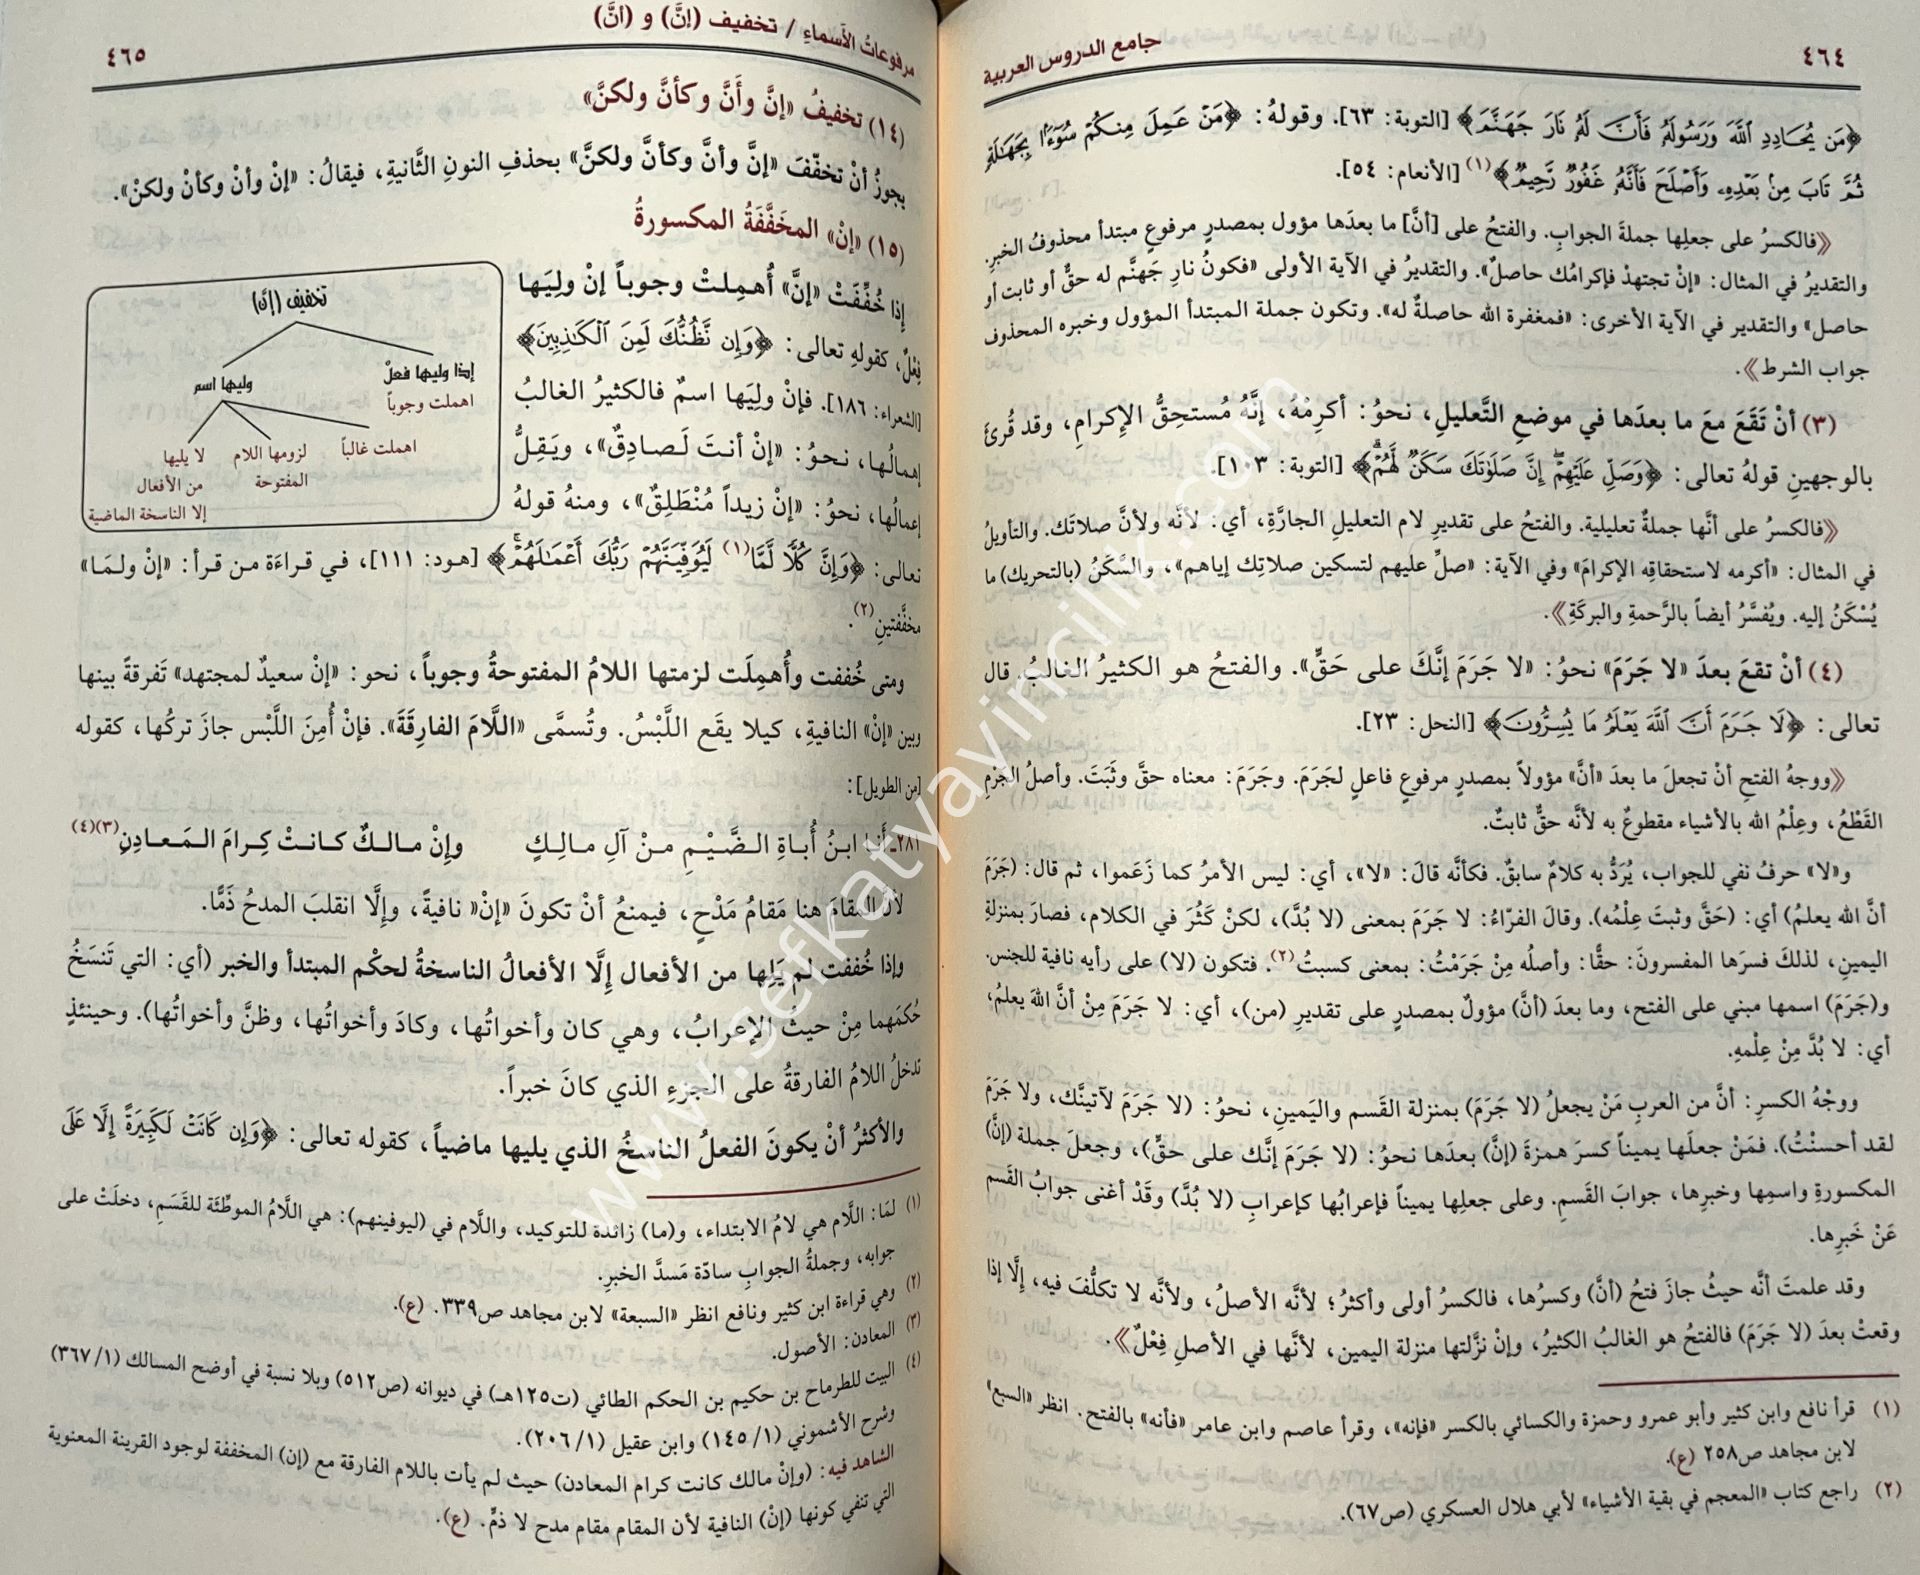 ٤٦٤
جامع الدروس العربية
﴿مَن يُحَادِدِ ٱللَّهَ وَرَسُولَهُۥ فَأَنَّ لَهُۥ نَارَ جَهَنَّمَ﴾ [التوبة: ٦٣]. وقولهُ: ﴿مَنْ عَمِلَ مِنكُمْ سُوٓءًۢا بِجَهَٰلَةٍ
ثُمَّ تَابَ مِنۢ بَعْدِهِۦ وَأَصْلَحَ فَأَنَّهُۥ غَفُورٌ رَّحِيمٌ﴾(١) [الأنعام: ٥٤].
《فالكسرُ على جعلِها جملةَ الجوابِ. والفتحُ على [أنَّ] ما بعدَها مؤول بمصدرٍ مرفوعٍ مبتدأ محذوفُ الخبرِ.
والتقديرُ في المثال: «إنْ تجتهدْ فإكرامُك حاصلٌ». والتقديرُ في الآية الأولى «فكونُ نارِ جَهنَّم له حقٌّ أو ثابت أو
حاصل» والتقدير في الآية الأخرى: «فمغفرة الله حاصلةٌ له». وتكون جملة المبتدأ المؤول وخبره المحذوف
جواب الشرط》.
(٣) أنْ تَقَعَ معَ ما بعدَها في موضعِ التَّعليلِ، نحوُ: أكرِمْهُ، إنَّهُ مُستحِقُّ الإكرامِ، وقد قُرئَ
بالوجهينِ قولهُ تعالى: ﴿وَصَلِّ عَلَيْهِمْ إِنَّ صَلَوٰتَكَ سَكَنٌ لَّهُمْ﴾ [التوبة: ١٠٣].
《فالكسرُ على أنَّها جملةٌ تعليلية. والفتحُ على تقديرِ لام التعليل الجارَّةِ، أي: لأنَّه ولأنَّ صلاتَك. والتأويلُ
في المثال: «أكرمه لاستحقاقِه الإكرامَ» وفي الآية: «صلِّ عليهم لتسكين صلاتِك إياهم»، والسَّكَنُ (بالتحريك) ما
يُسْكَنُ إليه. ويُفسَّرُ أيضاً بالرَّحمةِ والبركَةِ》.
(٤) أنْ تقعَ بعدَ «لا جَرَمَ» نحوُ: «لا جَرَمَ إنَّكَ على حَقٍّ». والفتحُ هو الكثيرُ الغالبُ. قال
تعالى: ﴿لَا جَرَمَ أَنَّ ٱللَّهَ يَعْلَمُ مَا يُسِرُّونَ﴾ [النحل: ٢٣].
《ووجهُ الفتحِ أنْ تجعلَ ما بعدَ «أنَّ» مؤولاً بمصدرٍ مرفوعٍ فاعلٍ لجَرَمَ. وجَرَمَ: معناه حقَّ وثبَتَ. وأصلُ الجَرْمِ
القَطْعُ، وعِلْمُ الله بالأشياء مقطوعٌ به لأنَّه حقٌّ ثابتٌ.
و«لا» حرفُ نفي للجواب، يُرَدُّ به كلامٌ سابقٌ. فكأنَّه قالَ: «لا»، أي: ليس الأمرُ كما زَعَموا، ثم قال: (جَرَمَ
أنَّ الله يعلمُ) أي: (حَقَّ وثبتَ عِلْمُه). وقالَ الفرّاءُ: لا جَرَمَ بمعنى (لا بُدَّ)، لكنْ كَثُرَ في الكلام، فصارَ بمنزلةِ
اليمينِ، لذلكَ فسرَها المفسرونَ: حقًّا: وأصلُه مِنْ جَرَمْتُ: بمعنى كسبتُ(٢). فتكون (لا) على رأيه نافية للجنس.
و(جَرَمَ) اسمها مبني على الفتح، وما بعدَ (أنَّ) مؤولٌ بمصدرٍ على تقديرِ (من)، أي: لا جَرَمَ مِنْ أنَّ اللهَ يعلمُ،
أي: لا بُدَّ مِنْ عِلْمهِ.
ووجْهُ الكسرِ: أنَّ من العربِ مَنْ يجعلُ (لا جَرَمَ) بمنزلة القَسم واليَمينِ، نحوُ: (لا جَرَمَ لآتينَّك، ولا جَرَمَ
لقد أحسنْتُ). فمَنْ جعلَها يميناً كسرَ همزةَ (إنَّ) بعدَها نحوُ: (لا جَرَمَ إنَّك على حقٍّ)، وجعلَ جملة (إنَّ)
المكسورةِ واسمِها وخبرِها، جوابَ القَسمِ. وعلى جعلِها يميناً فإعرابُها كإعرابِ (لا بُدَّ) وقَدْ أغنى جوابُ القَسم
عَنْ خَبرِها.
وقد علمتَ أنَّه حيثُ جازَ فتحُ (أنَّ) وكسرُها، فالكسرُ أولى وأكثرُ؛ لأنَّه الأصلُ، ولأنَّه لا تكلُّفَ فيه، إلَّا إذا
وقعتْ بعدَ (لا جَرَمَ) فالفتحُ هو الغالبُ الكثيرُ، وإنْ نزَّلتها منزلة اليمين، لأنَّها في الأصلِ فِعْلٌ》.
(١) قرأ نافع وابن كثير وأبو عمرو وحمزة والكسائي بالكسر «فإنه»، وقرأ عاصم وابن عامر «فأنه» بالفتح. انظر «السبع»
لابن مجاهد ص٢٥٨ (ع).
(٢) راجع كتاب «المعجم في بقية الأشياء» لأبي هلال العسكري (ص٦٧).
مرفوعاتُ الأسماءِ / تخفيف (إنَّ) و (أنَّ)
٤٦٥
(١٤) تخفيفُ «إنَّ وأَنَّ وكأنَّ ولكنَّ»
يجوزُ أنْ تخفّفَ «إنَّ وأنَّ وكأنَّ ولكنَّ» بحذفِ النونِ الثَّانيةِ، فيقالُ: «إنْ وأنْ وكأنْ ولكنْ».
(١٥) «إنْ» المخَفَّفَةُ المكسورةُ
إذا خُفِّفَتْ «إنَّ» أُهمِلتْ وجوباً إنْ ولِيَها
فِعْلٌ، كقولهِ تعالى: ﴿وَإِن نَّظُنُّكَ لَمِنَ ٱلْكَٰذِبِينَ﴾
[الشعراء: ١٨٦]. فإنْ ولِيَها اسمٌ فالكثيرُ الغالبُ
إهمالُها، نحوُ: «إنْ أنتَ لَصادِقٌ»، ويَقِلُّ
إعمالُها، نحوُ: «إنْ زيداً مُنْطَلِقٌ»، ومنهُ قولهُ
تخفيف (إن)
إذا وليها فعل
وليها اسم
اهملت وجوباً
اهملت غالباً
لزومها اللام
المفتوحة
لا يليها
من الأفعال
إلا الناسخة الماضية
تعالى: ﴿وَإِنَّ كُلًّا لَّمَّا(١) لَيُوَفِّيَنَّهُمْ رَبُّكَ أَعْمَٰلَهُمْ﴾ [هود: ١١١]، في قراءَة من قرأ: «إنْ ولمَا»
مخفَّفتينِ(٢).
ومتى خُففت وأُهمِلَت لزمتها اللامُ المفتوحةُ وجوباً، نحو: «إنْ سعيدٌ لمجتهد» تَفرقةً بينها
وبين «إنْ» النافيةِ، كيلا يقَع اللَّبْسُ. وتُسمَّى «اللَّامَ الفارِقَةَ». فإنْ أُمِنَ اللَّبْس جازَ تركُها، كقوله
[من الطويل]:
٢٨١ـ أَنا ابنُ أُباةِ الضَّيْمِ منْ آلِ مالِكٍ وإنْ مالكٌ كانتْ كِرامَ المَعادِنِ(٣)(٤)
لأنَّ المقامَ هنا مَقامُ مَدْحٍ، فيمنعُ أنْ تكونَ «إنْ» نافيةً، وإلَّا انقلبَ المدحُ ذَمًّا.
وإذا خُففت لم يَلِها من الأفعال إلَّا الأفعالُ الناسخةُ لحكْم المبتدأ والخبر (أي: التي تَنسَخُ
حُكمَهما مِنْ حيثُ الإعرابُ، وهي كان وأخواتُها، وكادَ وأخواتُها، وظنَّ وأخواتُها). وحينئذٍ
تدخلُ اللامُ الفارقةُ على الجزءِ الذي كانَ خبراً.
والأكثرُ أنْ يكونَ الفعلُ الناسخُ الذي يليها ماضياً، كقوله تعالى: ﴿وَإِن كَانَتْ لَكَبِيرَةً إِلَّا عَلَى
(١) لمَا: اللَّام هي لامُ الابتداء، و(ما) زائدة للتوكيد، واللَّام في (ليوفينهم): هي اللَّامُ الموطِّئة للقَسَمِ، دخلَتْ على
جوابه، وجملةُ الجوابِ سادّة مَسدَّ الخبرِ.
(٢) وهي قراءة ابن كثير ونافع انظر «السبعة» لابن مجاهد ص٣٣٩. (ع).
(٣) المعادن: الأصول.
(٤) البيت للطرماح بن حكيم بن الحكم الطائي (ت١٢٥هـ) في ديوانه (ص٥١٢) وبلا نسبة في أوضح المسالك (١/٣٦٧)
وشرح الأشموني (١/١٤٥) وابن عقيل (١/٢٠٦).
الشاهد فيه: (وإنْ مالك كانت كرام المعادن) حيث لم يأت باللام الفارقة مع (إن) المخففة لوجود القرينة المعنوية
التي تنفي كونها (إنْ) النافية لأن المقام مقام مدح لا ذمٍّ. (ع).
www.sefkatyayincilik.com